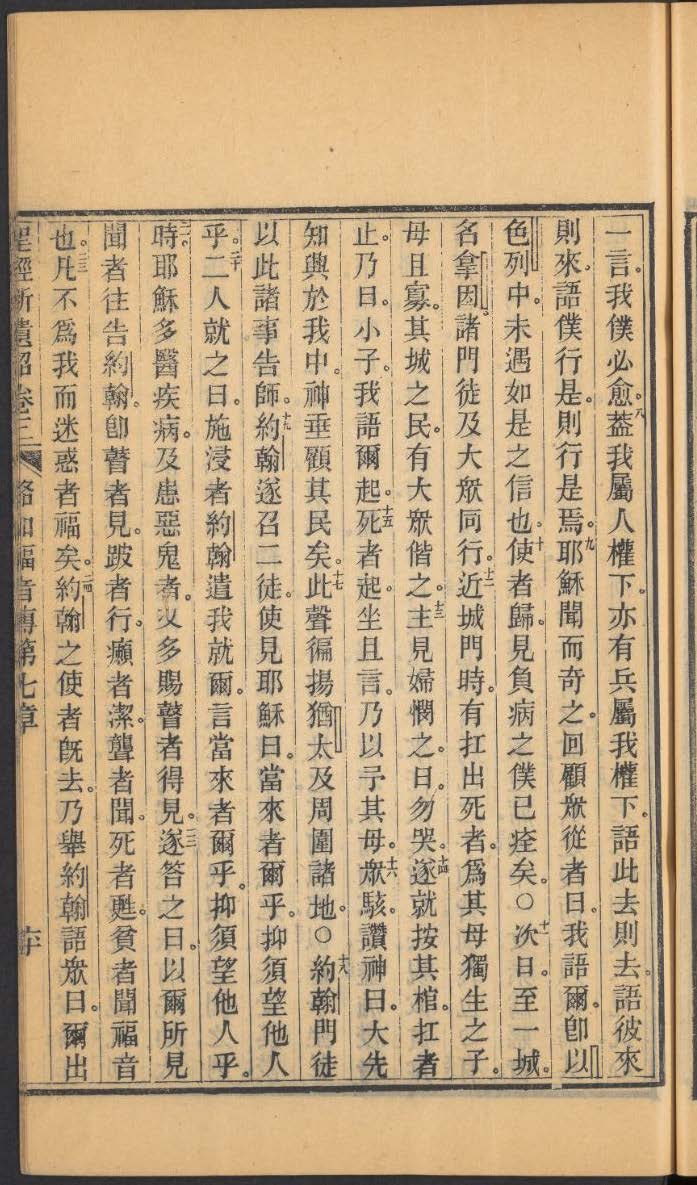 一言。我僕必愈。八蓋我屬人權下。亦有兵屬我權下。語此去則去。語彼來
則來。語僕行是。則行是焉。九耶穌聞而奇之。回顧衆從者曰。我語爾。卽以
色列中。未遇如是之信也。十使者歸。見負病之僕已痊矣。○十一次日。至一城。
名拿因。諸門徒及大衆同行。十二近城門時。有扛出死者。爲其母獨生之子。
母且寡。其城之民。有大衆偕之。十三主見婦憫之。曰。勿哭。十四遂就按其棺。扛者
止。乃曰。小子。我語爾起。十五死者起。坐且言。乃以予其母。十六衆駭。讚神曰。大先
知興於我中。神垂顧其民矣。十七此聲徧揚猶太及周圍諸地。○十八約翰門徒
以此諸事告師。十九約翰遂召二徒。使見耶穌曰。當來者爾乎。抑須望他人
乎。二十二人就之曰。施浸者約翰遣我就爾。言當來者爾乎。抑須望他人乎。
二一時。耶穌多醫疾病。及患惡鬼者。又多賜瞽者得見。二二遂答之曰。以爾所見
聞者往告約翰。卽瞽者見。跛者行。癩者潔。聾者聞。死者甦。貧者聞福音
也。二三凡不爲我而迷惑者福矣。二四約翰之使者旣去。乃舉約翰語衆曰。爾出
聖經新遺詔 卷三 路加福音傳第七章